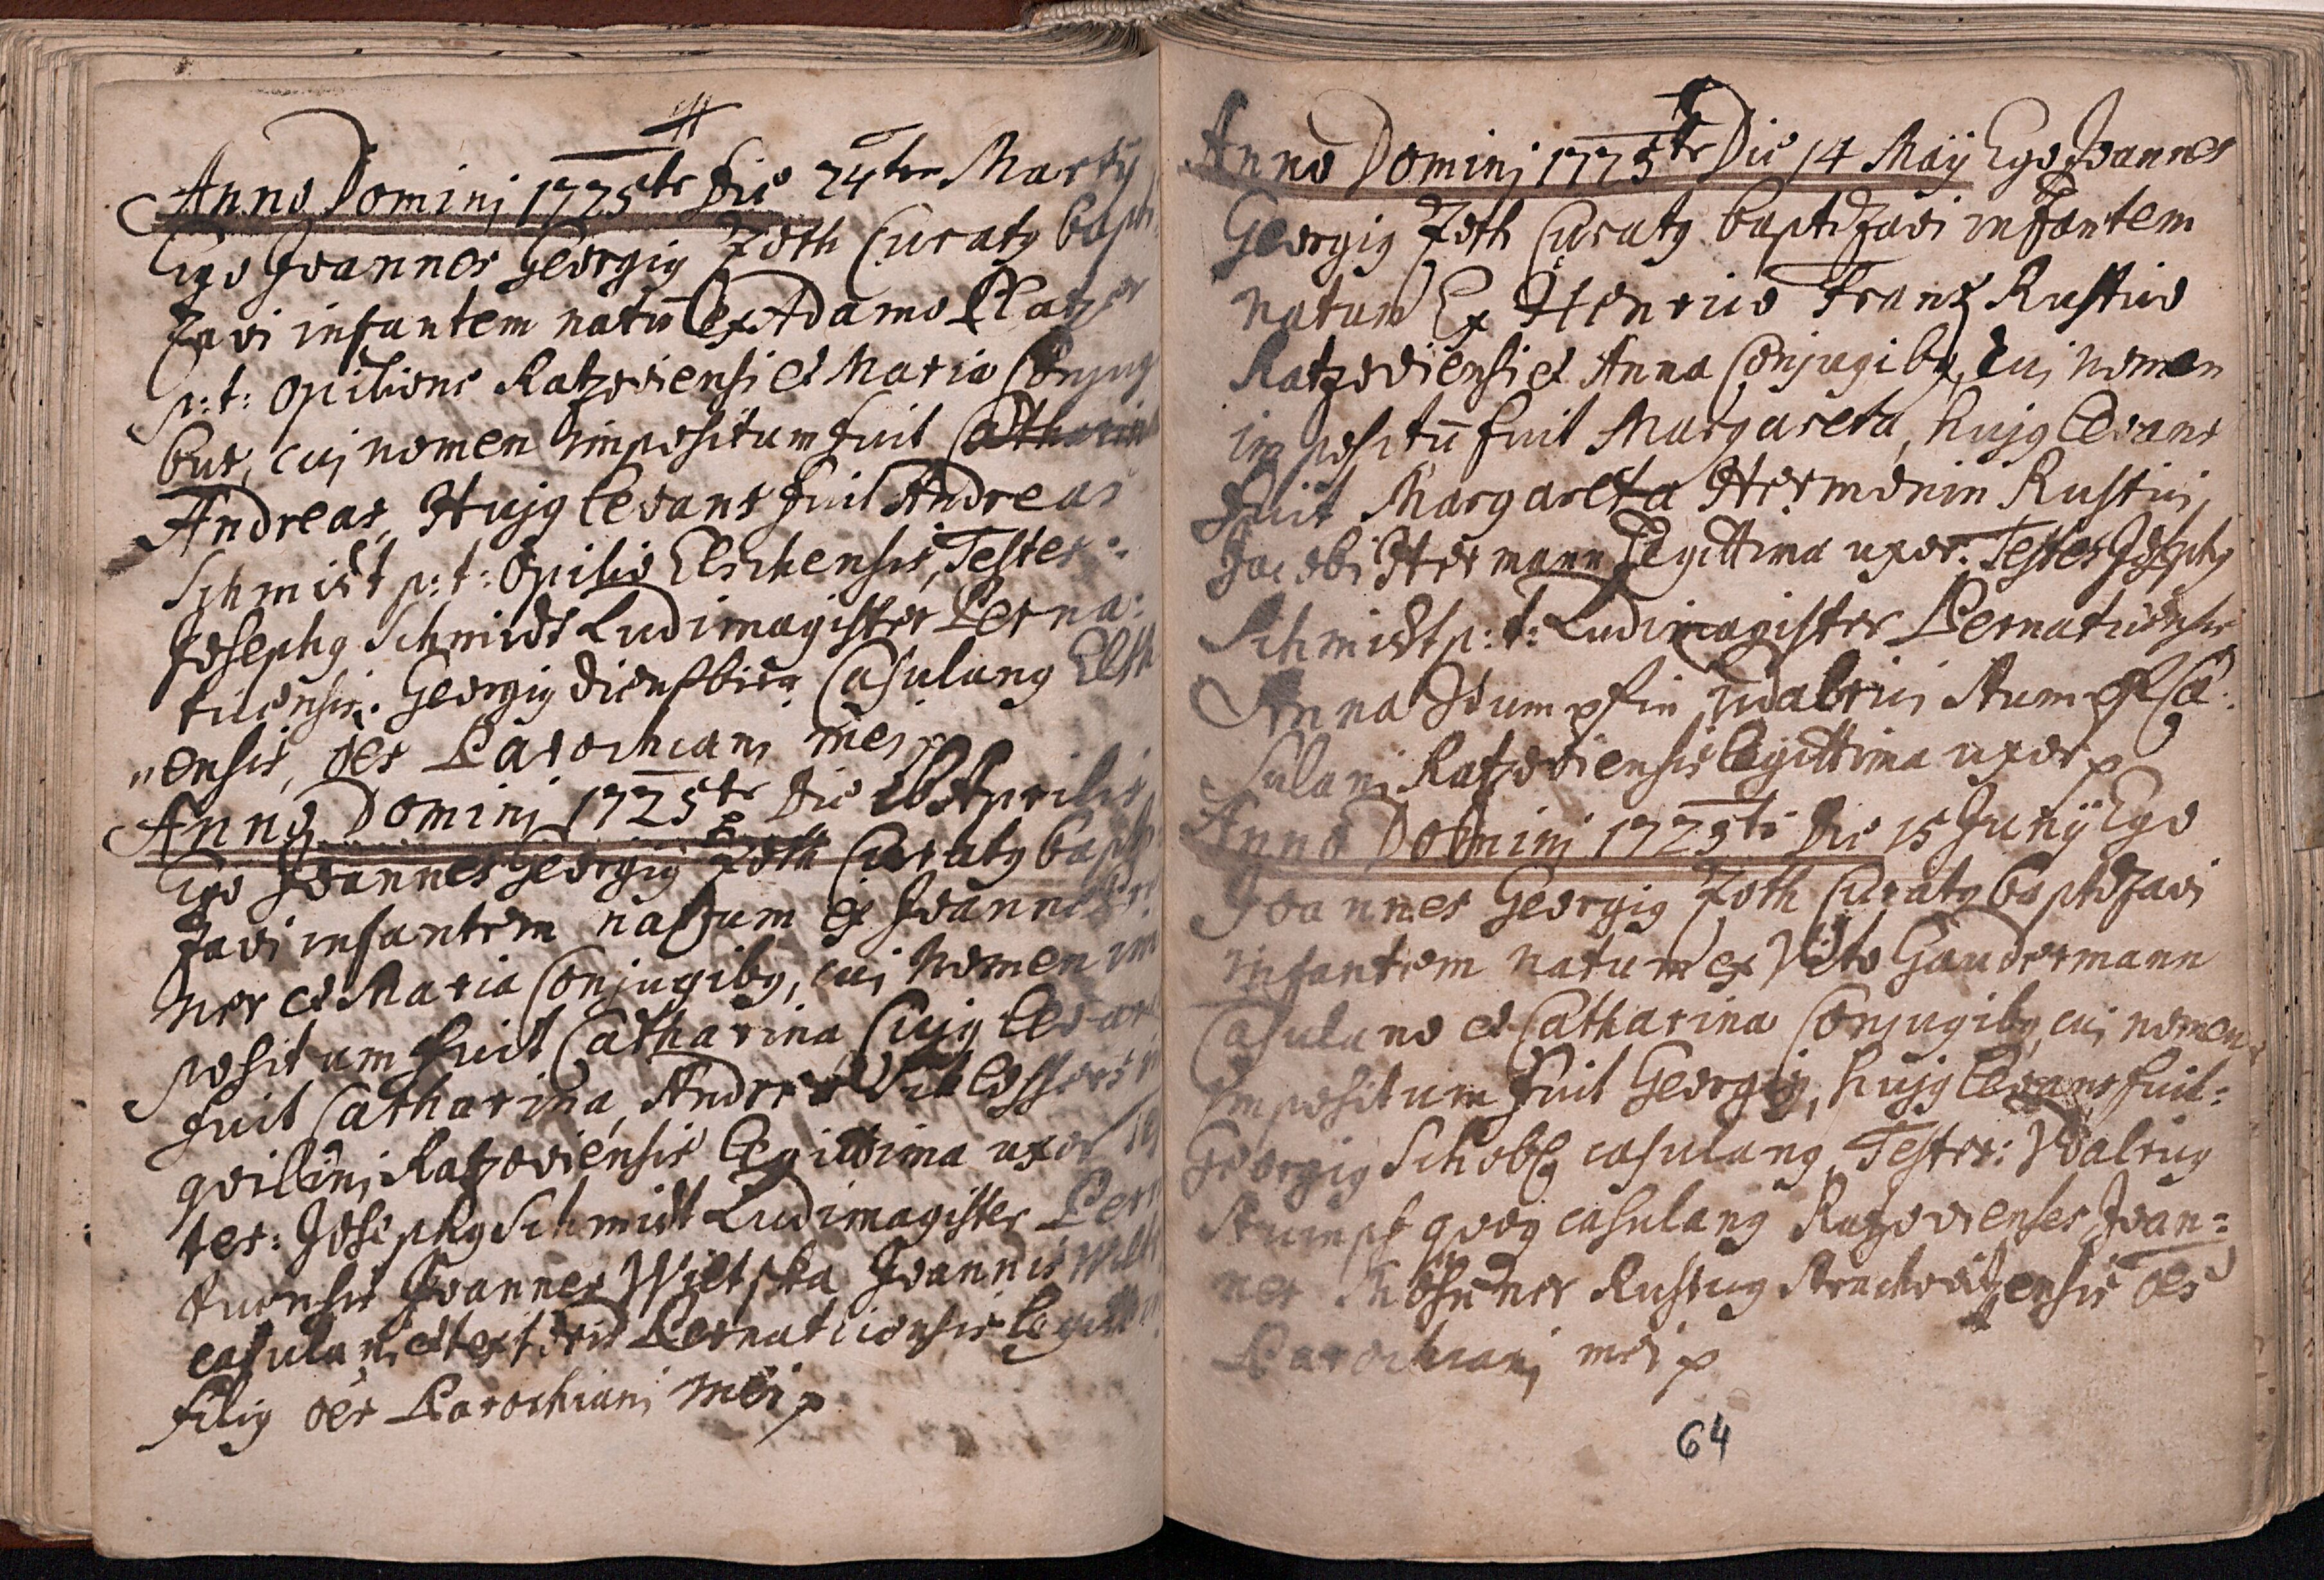 Anno Dominj 1725te Die 24ten Martij
Ego Joannes Georgig Zoth Curatg bapti
zavi infantem natū ex Adamo Platzer
p: t: Opilione Ratzoviensi et Maria Conjugi
bus, cuj nomen impositum fuit Catharina
Andreas, Hujg levans fuit Andreas
Schmidt p: t: Opilio Elschensis, Testes:
Josephg Schmidt Ludimagister Perna:
ticensis. Georgig Dienstbier Casulang Elsch
"ensis, oēs Parochianj mei p
Anno Dominj 1725te Die Aprilis
Ego Joannes Georgig Zoth Curatg bapti
zavi infantem natum ex Joanne
ner et Maria Conjugibg, cuj nomen im
positum fuit Catharina Cujg levans
fuit Catharina, Andreæ
qvilinj Ratzoviensis legittima uxor Tes
tes: Josephg Schmidt Ludimagister Pern
ticensis Joannes Wiltschka Joannis Wilt
casulanj et textoris Pernaticensis legittim
filig oēs Parochianj mei p
Anno Dominj 1725te Die 14 Maij Ego Joannes
Georgig Zoth Curatg baptizavi infantem
natum Ex Henrico Frantz Rustico
Ratzoviensi et Anna Conjugibg, Cuj nomen
impositū fuit Margareta, hujg levans
fuit Margareta Hermonin Rusticj
Jacobi Hermann Legittima uxor. Testes Josephg
Schmidt p: t: Ludimagister Pernaticensis
Anna Stumpfin Udalricj Stumpf Ca:
sulanj Ratzoviensis legittima uxor p
Anno Dominj 1725te Die 15 Junij Ego
Joannes Georgig Zoth Curatg baptizavi
infantem natum ex Vito Gaudermann
Casulano et Catharina Conjugibg, cuj nomen
impositum fuit Georgig, hujg levans fuit:
Georgig Schobg casulang, Testes: Vdalricg
Stumpf qvoq casulang Ratzoviensis Joan=
nes Rusticg oēs
Parochianj mei p
64